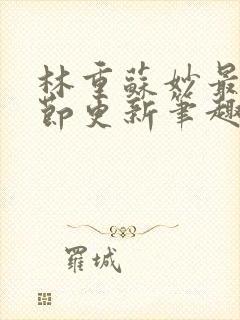 林重蘇妙最
節更新筆趣
羅城